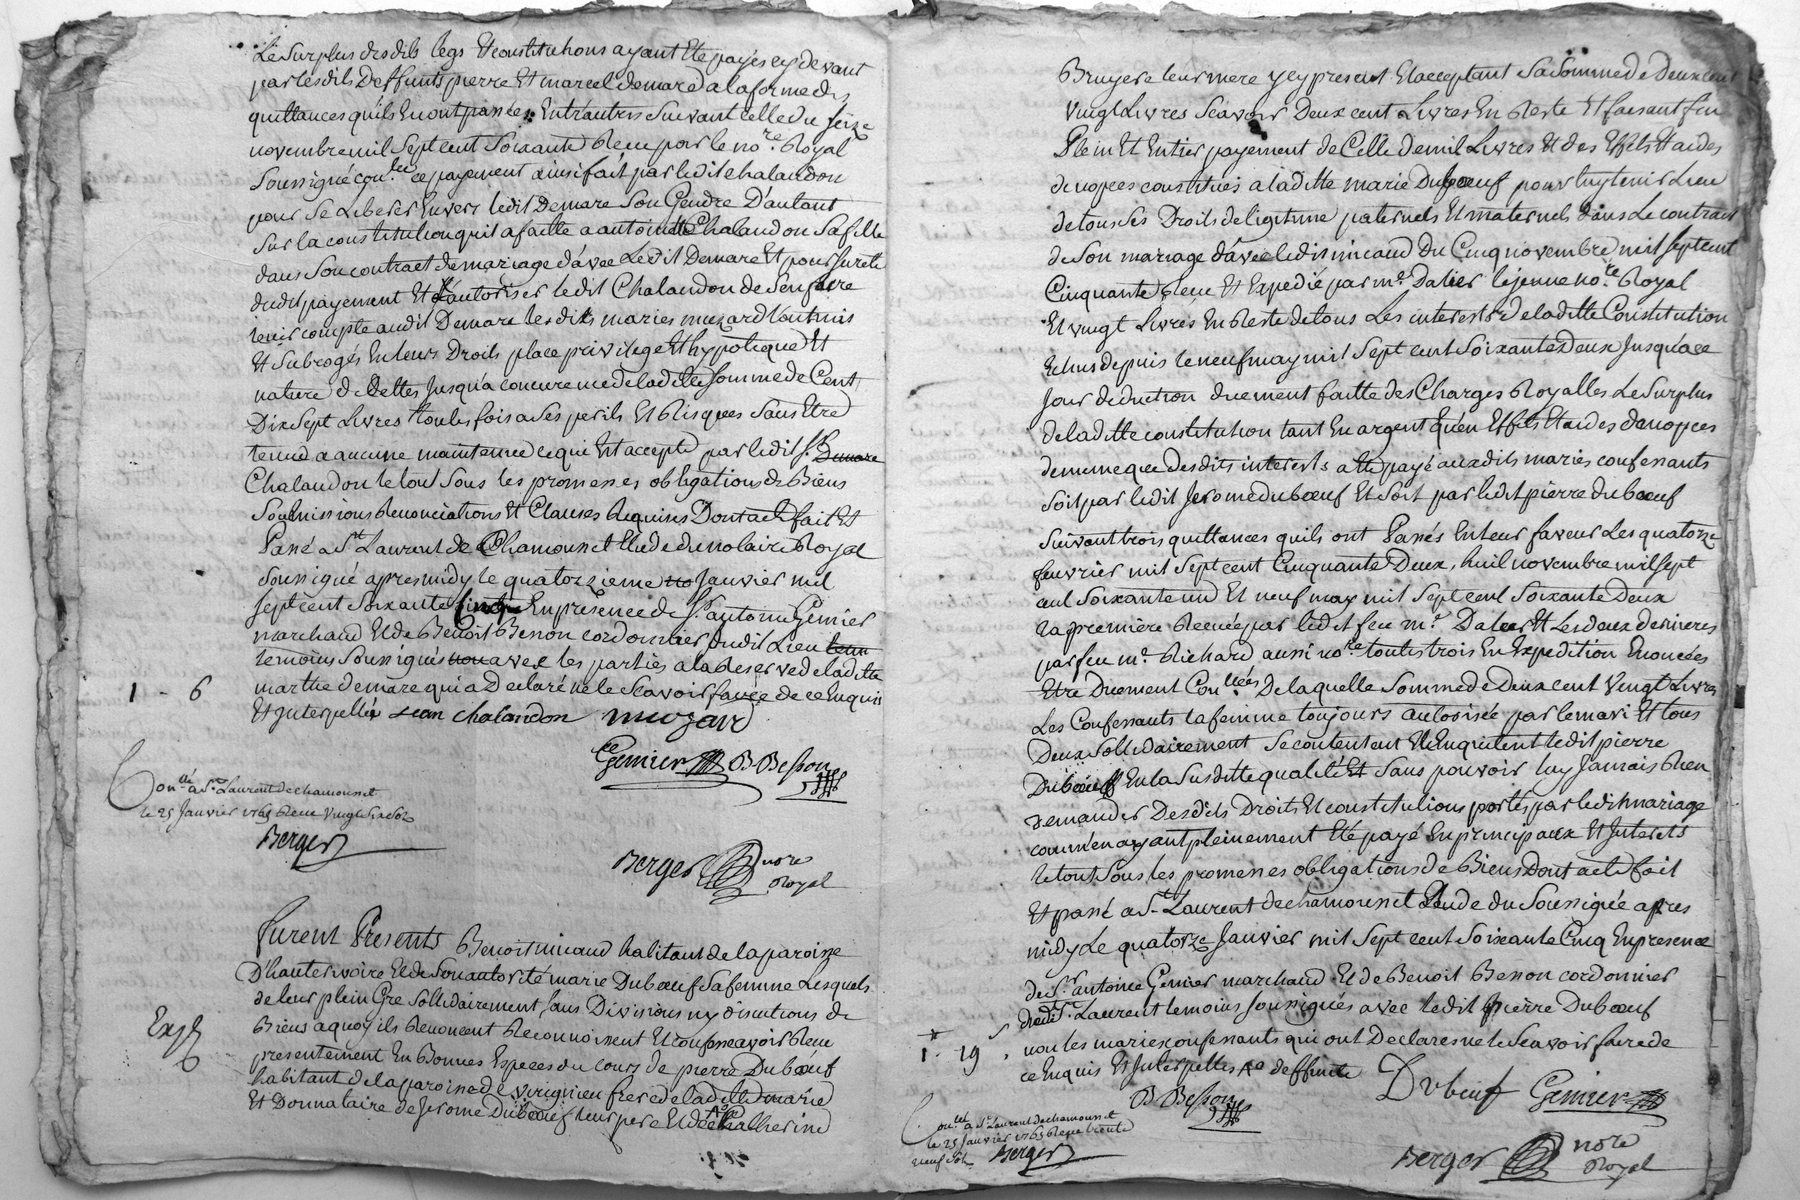 Le Surplus desdits legs Et constitutions ayant Eté payés cy devant
par lesdits Deffunts pierre Et marcel demare a la forme des
quittances qu'ils En ont passées Entr'autres Suivant celle du Seize
novembre mil Sept cent Soixante Receue par le no.re Royal
Soussigné con.lée ce payement ainsi fait par ledit chalandon
pour Se Liberer Envers ledit Demare Son Gendre D'autant
Sur la constitution qu'il a faitte a antoinette Chalandon Sa fille
dans Son contract de mariage d'avec Ledit Demare Et pour Sureté
dudit payement Et d'autoriser ledit Chalandon de S'en faire
tenir compte audit Demare lesdits maries muzard l'ont mis
Et Subrogés En leurs Droits place privilege Et hypoteque Et
nature de Dettes Jusqu'a concurence de laditte Somme de Cent
Dix Sept Livres toutes fois a Ses perils Et Risques Sans Etre
tenue a aucune maintenue ce qui Est accepté par ledit S.r Demare
Chalandon le tout Sous les promesses obligations de Biens
Soumissions Renonciations Et Clauses Requises Dont acte fait Et
Passé a S.t Laurent de Chamousset Etude du notaire Royal
Soussigné apres midy le quatorzieme no Janvier mil
sept cent Soixante Cinq En presence de S.r antoine Gemier
marchand Et de Benoit Besson cordonnier dudit Lieu tem
temoins Soussignés non avec les parties a la Reserve de laditte
marthe demare qui a Declaré ne le Scavoir faire de ce Enquis
1 - 6
Et Interpellée Jean chalandon muzard
Gemier B Besson
Con.tlé a S.t Laurent de chamousset
le 25 Janvier 1765 Receu Vingt Six Sols
Berger
Berger nore
Royal
Furent Presents Benoit micaud habitant de la paroisse
D'hauterivoire Et de Son autorité marie Duboeuf Sa femme Lesquels
de leur plein Gré Sollidairement Sans Divisions ny discutions de
Exp.é
Biens a quoy ils Renoncent Reconnoissent Et confessent avoir Receu
presentement En Bonnes Especes du cours de pierre Duboeuf
habitant de la paroisse de Virignieu frere de laditte marie
Et Donnataire de Jerome Duboeuf leur pere Et de Catherine
Bruyere leur mere y cy present Et acceptant La Somme de Deux cent
vingt Livres Scavoir Deux cent Livres En Reste Et faisant fin
Plein Et Entier payement de Celle de mil Livres Et des Effets Et aides
de nopces constitués a laditte marie Duboeuf pour luy tenir Lieu
de tous Ses Droits de legitime paternels Et maternels dans Le contract
de Son mariage d'avec ledit micaud Du Cinq novembre mil Sept cent
Cinquante Receu Et Expedié par m.e Dalier le jeune no.re Royal
Et vingt Livres En Reste de tous Les interests de laditte Constitution
Echus depuis le neuf may mil Sept cent Soixante Deux Jusqu'a ce
Jour deduction duement faitte des Charges Royalles Le Surplus
de laditte constitution tant En argent qu'en Effets Et aides de nopces
de meme que desdits interests a Eté payé auxdits maries confessants
Soit par ledit Jerome duboeuf Et Soit par ledit pierre duboeuf
Suivant trois quittances qu'ils ont Passés En leur faveur Les quatorze
fevrier mil Sept cent Cinquante Deux, huit novembre mil Sept
cent Soixante un Et neuf may mil Sept cent Soixante Deux
la premiere Receue par ledit feu m.e Dalier Et Les deux dernieres
par feu m.e Richard aussi no.re toutes trois En Expedition Enoncées
Etre Duement Con.llées De laquelle Somme de Deux cent Vingt Livres
Les Confessants la femme toujours autorisée par le mari Et tous
Deux Sollidairement Se contentent Et En quittent ledit pierre
Duboeuf En la Susditte qualité Et Sans pouvoir luy Jamais Rien
demander Desdits Droits Et constitutions portés par ledit mariage
comm'en ayant pleinement Eté payé En principaux Et Interets
le tout Sous les promesses obligations de Biens Dont acte fait
Et passé a S.t Laurent de chamousset Etude du Soussigné apres
midy Le quatorze Janvier mil Sept cent Soixante Cinq En presence
de S.r antoine Gemier marchand Et de Benoit Besson cordonnier
dudit S.t Laurent temoins Soussignés avec ledit pierre Duboeuf
1 - 19
non les maries confessants qui ont Declarés ne le Scavoir faire de
ce Enquis Et Interpellés deffunte
Duboeuf Gemier
B Besson
Con.tlé a S.t Laurent de chamousset
le 25 Janvier 1765 Receu trente
neuf Sols Berger
Berger nore
Royal